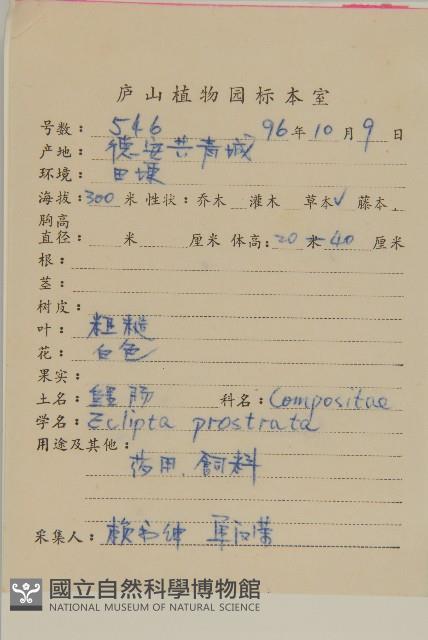 庐山植物园标本室
号数：546 96年10月9日
产地：德安共青城
环境：田埂
海拔：300米 性状：乔木 灌木 草本✓ 藤本
胸高
直径： 米 厘米 体高：20米40厘米
根：
茎：
树皮：
叶：粗糙
花：白色
果实：
土名：鳢肠 科名：Compositae
学名：Eclipta prostrata
用途及其他：
药用、飼料
采集人：赖书绅
國立自然科學博物館
NATIONAL MUSEUM OF NATURAL SCIENCE